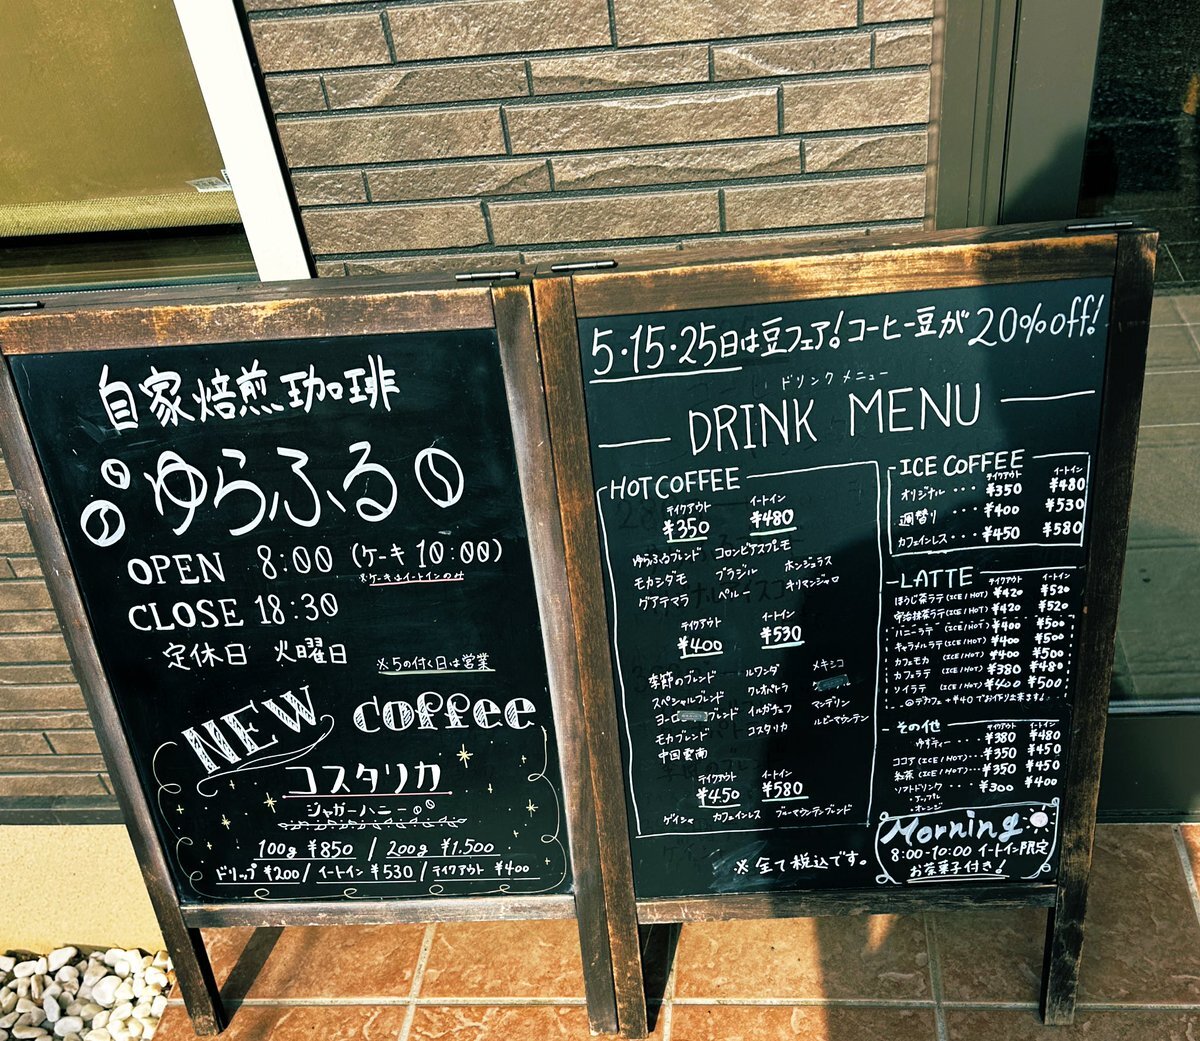 自家焙煎珈琲
ゆらふる
OPEN 8:00 (ケーキ 10:00)
※ケーキはイートインのみ
CLOSE 18:30
定休日 火曜日 ※5の付く日は営業
NEW coffee
コスタリカ
シャガーハニー
100g ¥850 / 200g ¥1.500
ドリップ ¥200 / イートイン ¥530 / テイクアウト ¥400
5・15・25日は豆フェア!コーヒー豆が20%off!
ドリンクメニュー
DRINK MENU
HOT COFFEE
テイクアウト イートイン
¥350 ¥480
ゆらふるブレンド コロンビアスプレモ
モカシダモ ブラジル ホンジュラス
グアテマラ ペルー キリマンジャロ
テイクアウト イートイン
¥400 ¥530
季節のブレンド ルワンダ メキシコ
スペシャルブレンド クレオパトラ
ヨーロ ブレンド イルガチェフ マンデリン
モカブレンド コスタリカ ルビーマウンテン
中国雲南
テイクアウト イートイン
¥450 ¥580
ゲイシャ カフェインレス ブルーマウンテンブレンド
※全て税込です。
ICE COFFEE
テイクアウト イートイン
オリジナル ・・・ ¥350 ¥480
週替り ・・・ ¥400 ¥530
カフェインレス ・・・ ¥450 ¥580
LATTE
テイクアウト イートイン
ほうじ茶ラテ (ICE/HOT) ¥420 ¥520
宇治抹茶ラテ (ICE/HOT) ¥420 ¥520
ハニーラテ (ICE/HOT) ¥400 ¥500
キャラメルラテ (ICE/HOT) ¥400 ¥500
カフェモカ (ICE/HOT) ¥400 ¥500
カフェラテ (ICE/HOT) ¥380 ¥480
ソイラテ (ICE/HOT) ¥400 ¥500
デカフェ +¥40でお作り出来ます!
その他
テイクアウト イートイン
ゆずティー ・・・ ¥380 ¥480
ココア (ICE/HOT)・・・ ¥350 ¥450
紅茶 (ICE/HOT)・・・ ¥350 ¥450
ソフトドリンク ・・・ ¥300 ¥400
・アップル
・オレンジ
Morning
8:00-10:00 イートイン限定
お茶菓子付き!